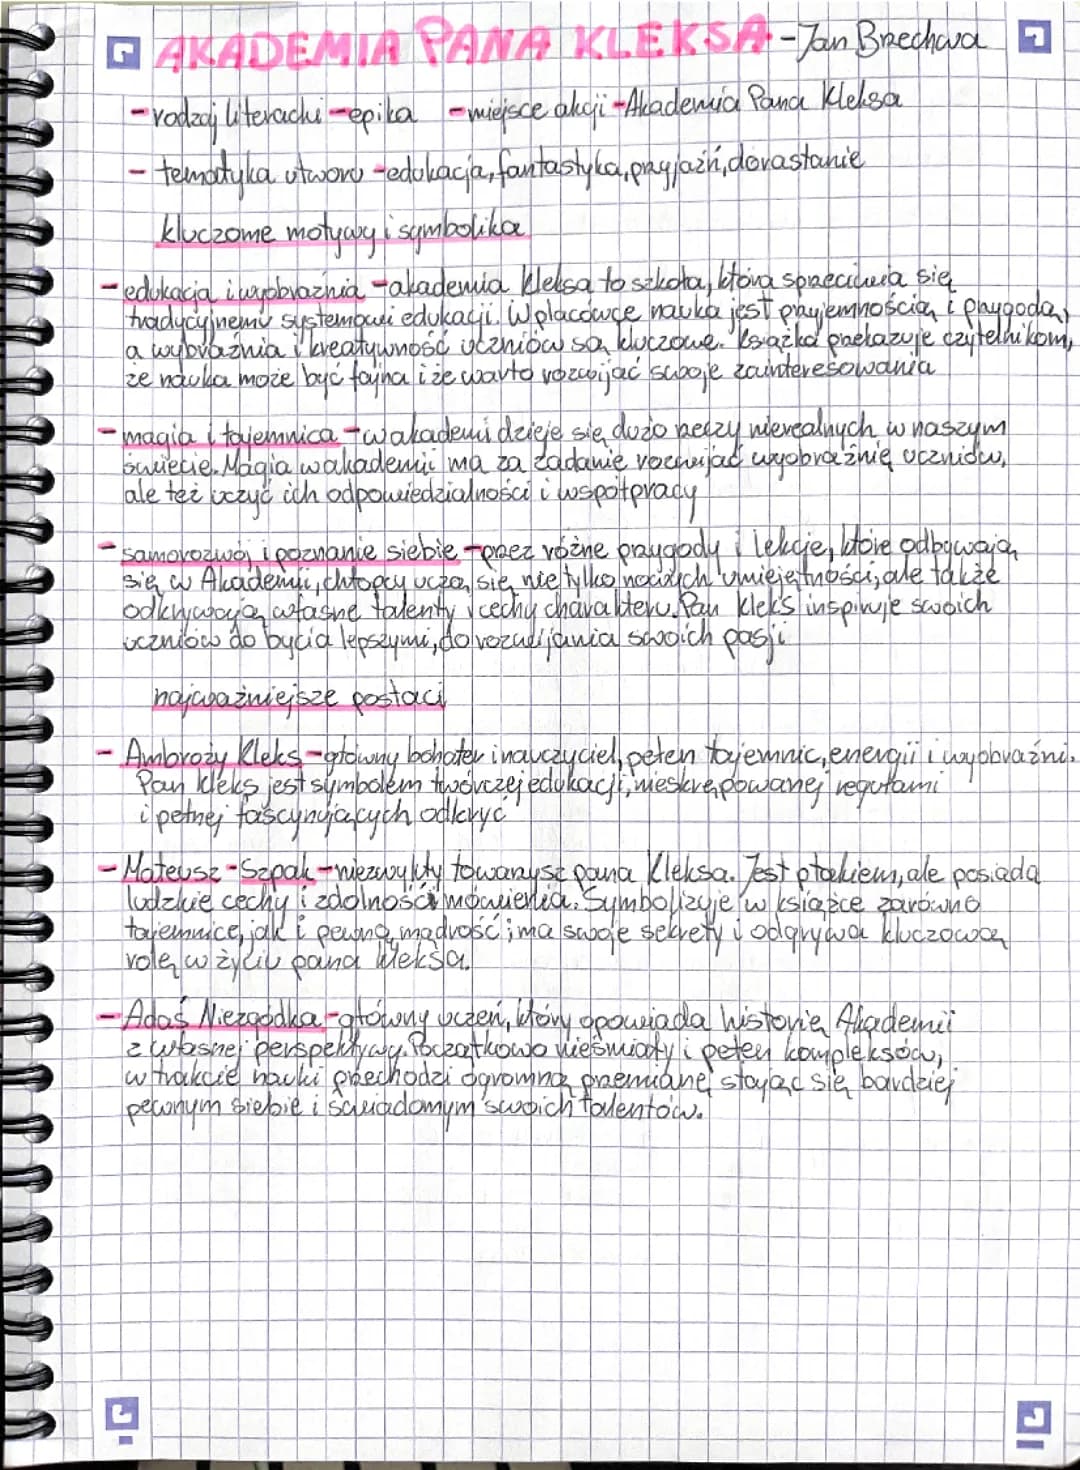 AKADEMIA PANA KLEKSA - Jan Brzechwa
- rodzaj literacki - epika - miejsce akcji - Akademia Pana Kleksa
- tematyka utworu - edukacja, fantastyka, przyjaźń, dorastanie
kluczowe motywy i symbolika
- edukacja i wyobraźnia - akademia Kleksa to szkoła, która sprzeciwia się
tradycyjnemu systemowi edukacji. W placówce nauka jest przyjemnością i przygodą,
a wyobraźnia i kreatywność uczniów są kluczowe. Książka przekazuje czytelnikom,
że nauka może być fajna i że warto rozwijać swoje zainteresowania
- magia i tajemnica - w akademi dzieje się dużo rzeczy nierealnych w naszym
świecie. Magia w akademii ma za zadanie rozwijać wyobraźnię uczniów,
ale też uczyć ich odpowiedzialności i współpracy
- samorozwój i poznanie siebie - przez różne przygody i lekcje, które odbywają
się w Akademii, chłopcy uczą się nie tylko nowych umiejętności, ale także
odkrywają własne talenty i cechy charakteru. Pan Kleks inspiruje swoich
uczniów do bycia lepszymi, do rozwijania swoich pasji
najważniejsze postaci
- Ambroży Kleks - główny bohater i nauczyciel, pełen tajemnic, energii i wyobraźni.
Pan Kleks jest symbolem twórczej edukacji, nieskrępowanej regułami
i pełnej fascynujących odkryć
- Mateusz - Szpak - niezwykły towarzysz pana Kleksa. Jest ptakiem, ale posiada
ludzkie cechy i zdolności mówienia. Symbolizuje w książce zarówno
tajemnice, jak i pewną mądrość; ma swoje sekrety i odgrywa kluczową
rolę w życiu pana Kleksa.
- Adaś Niezgódka - główny uczeń, który opowiada historię Akademii
z własnej perspektywy. Początkowo nieśmiały i pełen kompleksów,
w trakcie nauki przechodzi ogromną przemianę, stając się bardziej
pewnym siebie i świadomym swoich talentów.